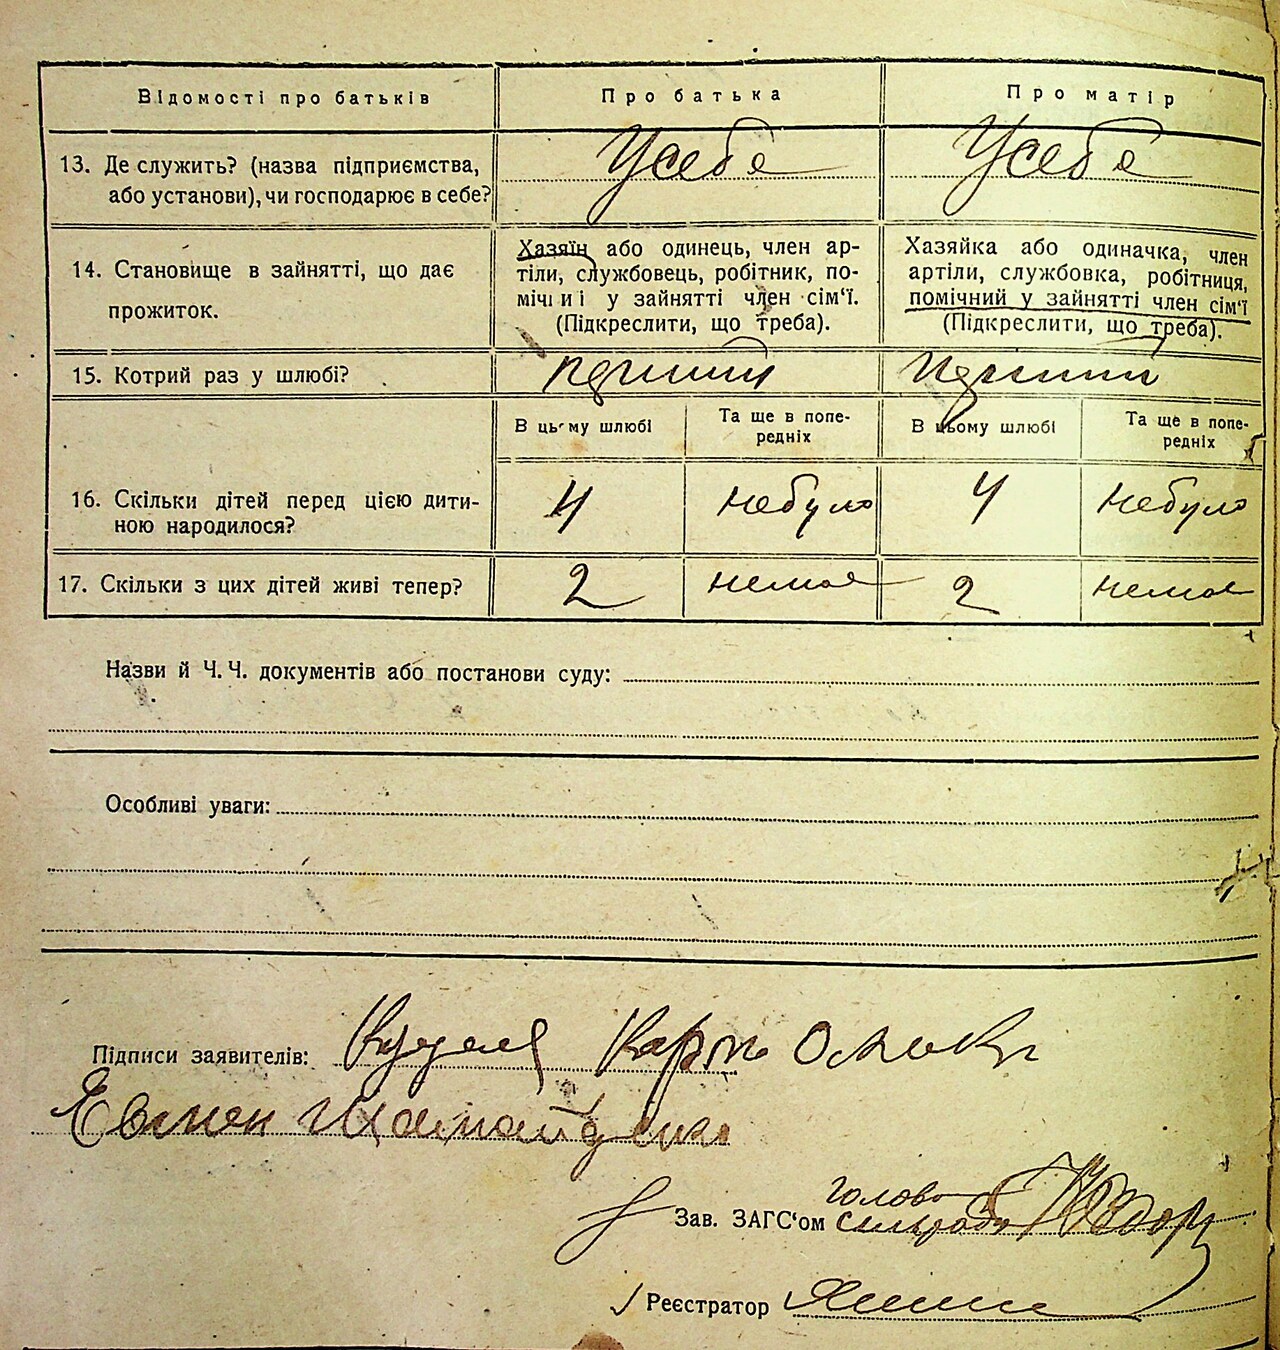 Відомості про батьків
Про батька
Про матір
13. Де служить? (назва підприємства, або установи), чи господарює в себе?
У себе
У себе
14. Становище в зайнятті, що дає прожиток.
Хазяїн або одинець, член ар-
тіли, службовець, робітник, по-
мічний у зайнятті член сім'ї.
(Підкреслити, що треба).
Хазяйка або одиначка, член
артіли, службовка, робітниця,
помічний у зайнятті член сім'ї
(Підкреслити, що треба).
15. Котрий раз у шлюбі?
перший
перший
В цьому шлюбі
Та ще в попе-
редніх
В цьому шлюбі
Та ще в попе-
редніх
16. Скільки дітей перед цією дити-
ною народилося?
4
небуло
4
небуло
17. Скільки з цих дітей живі тепер?
2
немає
2
немає
Назви й Ч. Ч. документів або постанови суду:
Особливі уваги:
Підписи заявителів:
Евмен
голова
Зав. ЗАГС'ом сільради
Реєстратор